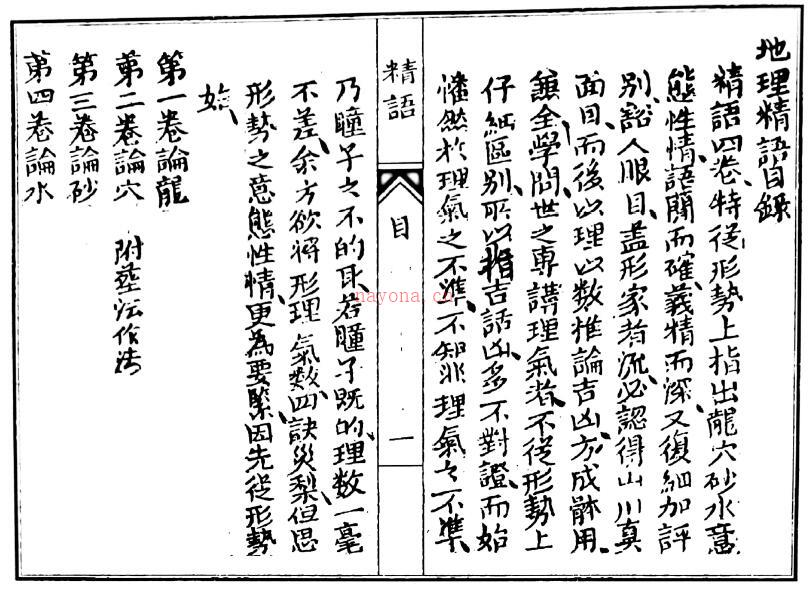 地理精語目錄
精語四卷、特從形勢上指出龍穴砂水意
態性情、語簡而確、義精而深、又復細加評
別、豁人眼目、盡形家者流、必認得山川真
面目、而後以理以數推論吉凶、方成體用
兼全學問、世之專講理氣者、不從形勢上
仔細區別、所以指吉話凶、多不對證、而始
憣然於理氣之不準、不知非理氣之不準、
乃瞳子之不的耳、若瞳子既的、理數一毫
不差、余方欲將形理氣數四訣災梨、但思
形勢之意態性情、更為要緊、因先從形勢
始、
第一卷論龍
第二卷論穴 附葬法作法
第三卷論砂
第四卷論水
精語
目
一
nayona.cn